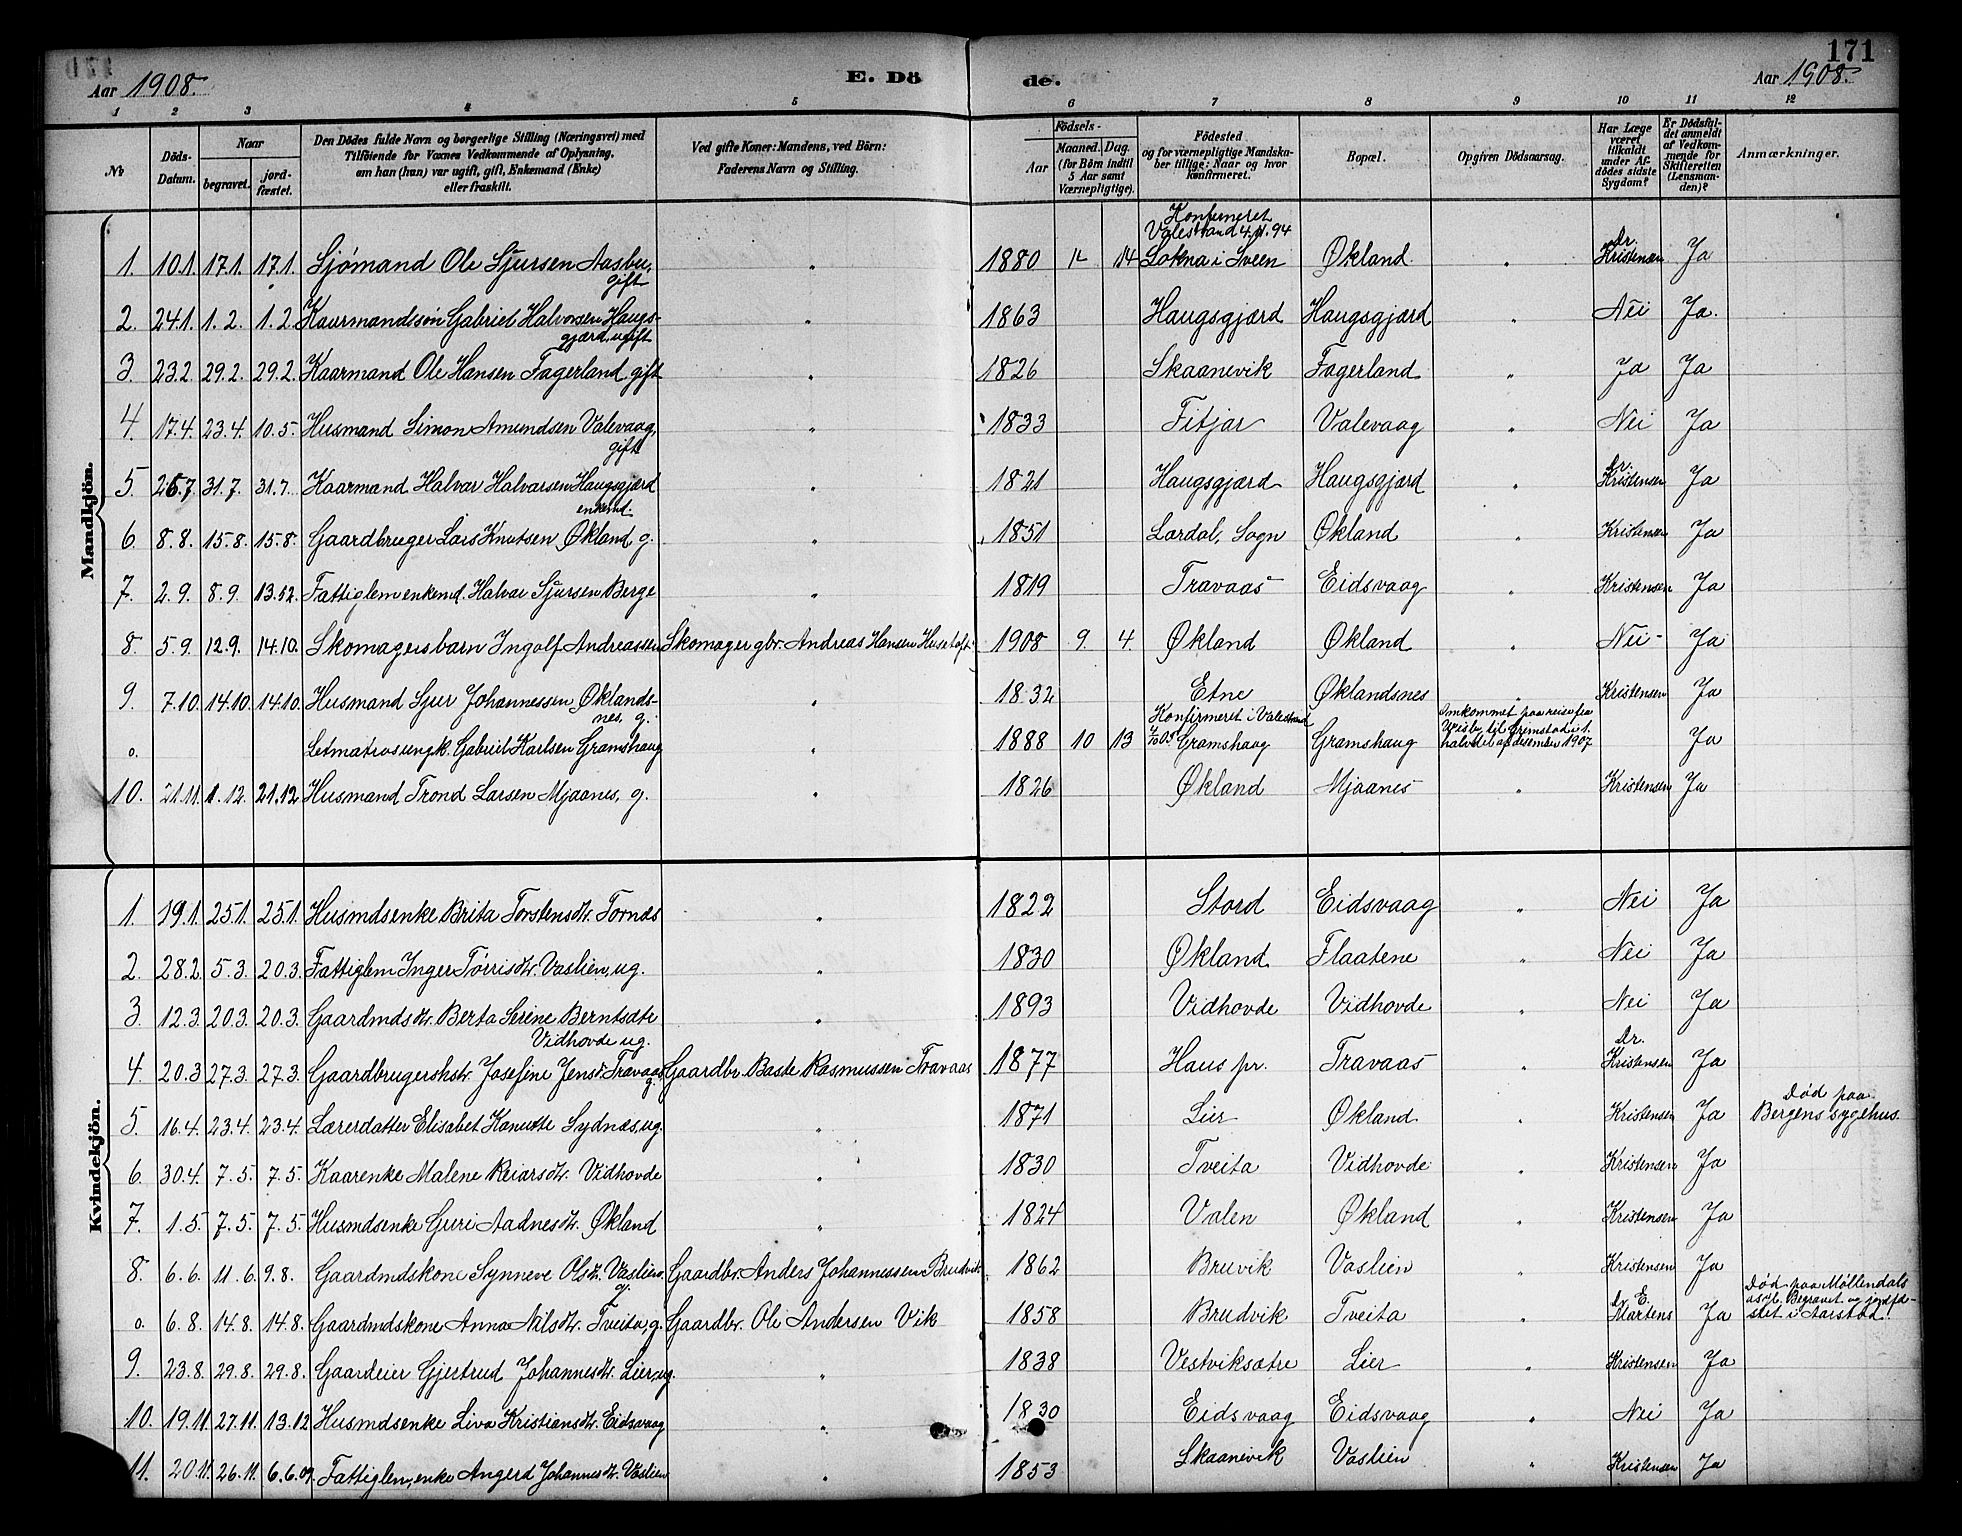 171
Aar 1908. E. Dö de. Aar 1908.
1 2 3 4 5 6 7 8 9 10 11 12
No
Döds-Datum.
Naar
begravet. jordfæstet.
Den Dödes fulde Navn og borgerlige Stilling (Næringsvei) med
Tilföiende for Voxnes Vedkommende af Oplysning,
om han (hun) var ugift, gift, Enkemand (Enke)
eller fraskilt.
Ved gifte Koner: Mandens, ved Börn:
Faderens Navn og Stilling.
Födsels-
Aar Maaned. Dag.
(for Börn indtil
5 Aar samt
Værnepligtige).
Födested
og for værnepligtige Mandska-
ber tillige: Naar og hvor
konfirmeret.
Bopæl.
Opgiven Dödsaarsag.
Har Læge
været
tilkaldt
under Af-
dödes sidste
Sygdom?
Er Dödsfal-
det anmeldt
af Vedkom-
mende for
Skifteretten
(Lensman-
den)?
Anmærkninger.
Mandkjön.
Konfirmeret
Valestrand 4.11.94
1. 10.1. 17.1. 17.1. Sjømand Ole Sjursen Aasbu, gift " 1880 12 14 Løkna i Sveen Økland " Dr. Kristensen Ja
2. 24.1. 1.2. 1.2. Kaarmandssøn Gabriel Halvorsen Haugs-
gjærd, ugift " 1863 Haugsgjærd Haugsgjærd " Nei Ja.
3. 23.2. 29.2. 29.2. Kaarmand Ole Hansen Fagerland gift " 1826 Skaanevik Fagerland " Ja Ja
4. 17.4. 23.4. 10.5. Husmand Simon Amundsen Valevaag, gift " 1833 Fitjar Valevaag " Nei Ja
5. 26.7. 31.7. 31.7. Kaarmand Halvar Halvarsen Haugsgjærd
enkemd. " 1821 Haugsgjærd Haugsgjærd " Dr. Kristensen Ja
6. 8.8. 15.8. 15.8. Gaardbruger Lars Knutsen Økland g. " 1851 Lærdal, Sogn Økland " Kristensen Ja
7. 2.9. 8.9. 13.12. Fattiglem enkemd. Halvar Sjursen Berge " 1819 Travaas Eidsvaag " Kristensen Ja
8. 5.9. 12.9. 14.10. Skomagersbarn Ingolf Andreassen Skomager gbr. Andreas Hansen Husetoft 1908 9. 4. Økland Økland " Nei Ja
9. 7.10. 14.10. 14.10. Husmand Sjur Johannessen Øklands-
nes, g. " 1832 Etne Øklandsnes " Kristensen Ja
o. Letmatros ungk. Gabriel Karlsen Gramshaug " 1888 10 13 Konfirmeret i Valestrand Gramshaug Gramshaug Omkommet paa reise fra
Wisby til Grimstad i 1.
halvdel af desember 1907. Ja
10. 21.11. 1.12. 21.12 Husmand Trond Larsen Mjaanes, g. " 1826 Økland Mjaanes " Kristensen Ja
Kvindekjön.
1. 19.1. 25.1. 25.1. Husmdsenke Brita Torstensdtr. Tornæs " 1822 Stord Eidsvaag " Nei Ja
2. 28.2. 5.3. 20.3. Fattiglem Inger Tørrisdtr. Vaslien, ug. " 1830 Økland Flaatene " Nei Ja
3. 12.3. 20.3. 20.3. Gaardmdsdtr. Berta Serine Berntsdtr
Vidhovde ug. " 1893 Vidhovde Vidhovde " Nei Ja
4. 20.3 27.3. 27.3. Josefine Jensdr Travaas g. Gaardbr. Baste Rasmussen Travaas 1877 Haus pr. Travaas Dr. Kristensen Ja
5. 16.4. 23.4. 23.4. Lærerdatter Elisabet Kanutte Sydnæs, ug. " 1871 Lier Økland " Kristensen Ja Død paa
Bergens sygehus.
6. 30.4. 7.5. 7.5. Kaarenke Malene Reiarsdtr. Vidhovde " 1830 Tveita Vidhovde " Kristensen Ja
7. 1.5. 7.5. 7.5. Husmdsenke Guri Aadnesdtr. Økland " 1824 Valen Økland " Kristensen Ja
8. 6.6. 11.6. 9.8. Gaardmdskone Synneve Olsdtr. Vaslien g. Gaardbr. Anders Johannessen Brudvik 1862 Bruvik Vaslien " Kristensen Ja
o. 6.8. 14.8. 14.8. Gaardmdskone Anna Nilsdtr. Tveita, g. Gaardbr. Ole Andersen Vik 1858 Brudvik Tveita " Dr E. Martens Ja Død paa Møllendals
asyl. Begravet og jordfæ-
stet i Aarstad!
9. 23.8. 29.8. 29.8. Gaardeier Gjertrud Johannesdtr. Lier, ug. " 1838 Vestviksætre Lier " Kristensen Ja
10. 19.11. 27.11. 13.12 Husmdsenke Liva Kristiansdtr. Eidsvaag " 1830 Eidsvaag Eidsvaag " Nei Ja
11. 20.11. 26.11. 6.6.09. Fattiglem, enke Angerd Johannesdtr. Vaslien " 1853 Skaanevik Vaslien " Kristensen Ja